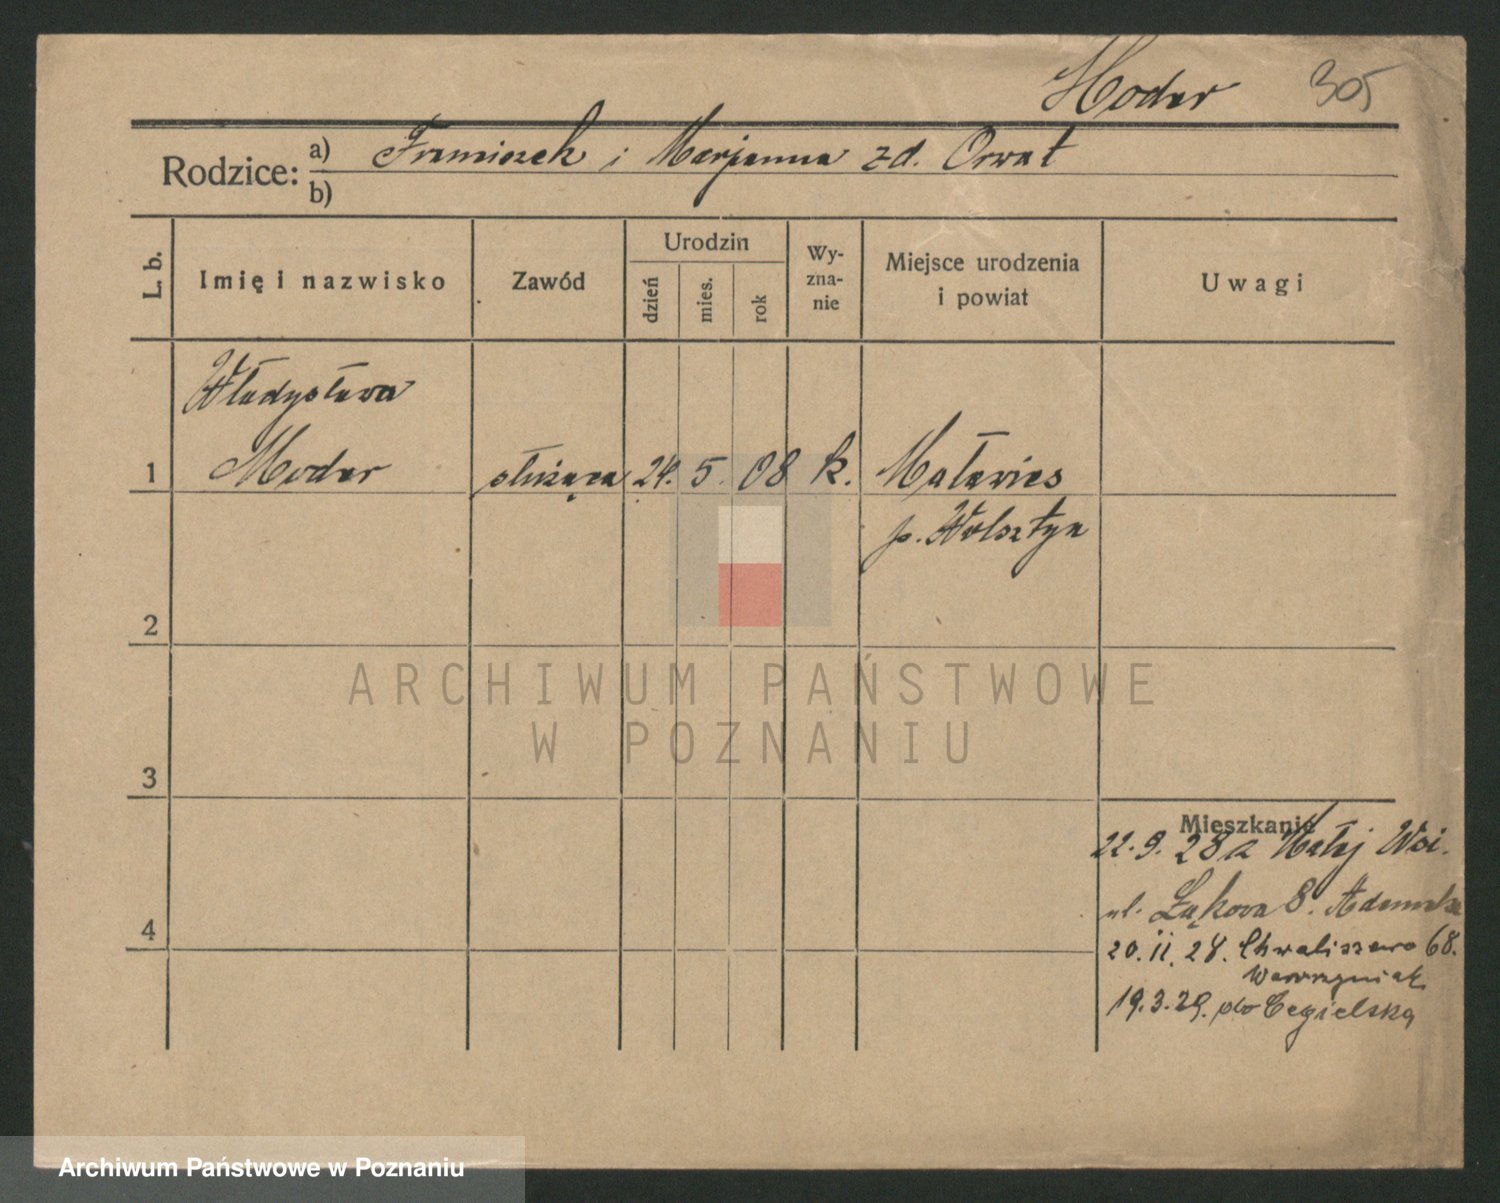 Moder 305
Rodzice: a) Franciszek i Marjanna zd. Orwat
b)
L. b.
Imię i nazwisko
Zawód
Urodzin
dzień
mies.
rok
Wy-
zna-
nie
Miejsce urodzenia
i powiat
Uwagi
Władysława
1 Moder służąca 24. 5. 08 k. Maławieś
p. Wolsztyn
2
ARCHIWUM PAŃSTWOWE
W POZNANIU
3
Mieszkanie
22. 9. 28 z Małej Wsi.
ul. Łąkowa 8.
4
20. 11. 28. Chwaliszewo 68.
Wawrzyniak
19. 3. 29. do Cegielską
Archiwum Państwowe w Poznaniu